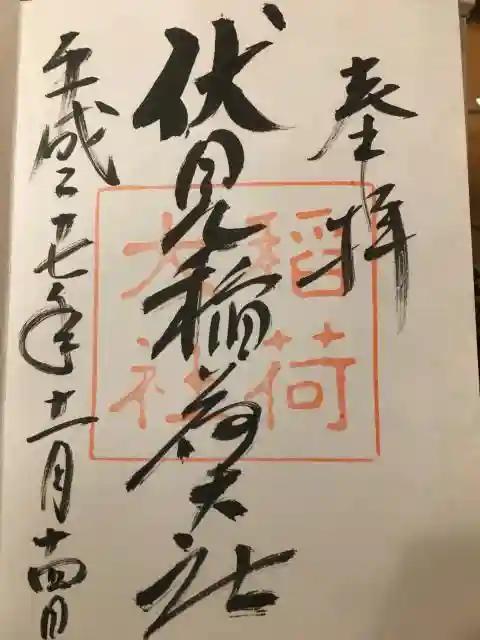 奉拝
伏見稲荷大社
平成二十七年十一月十四日
稲荷
大社